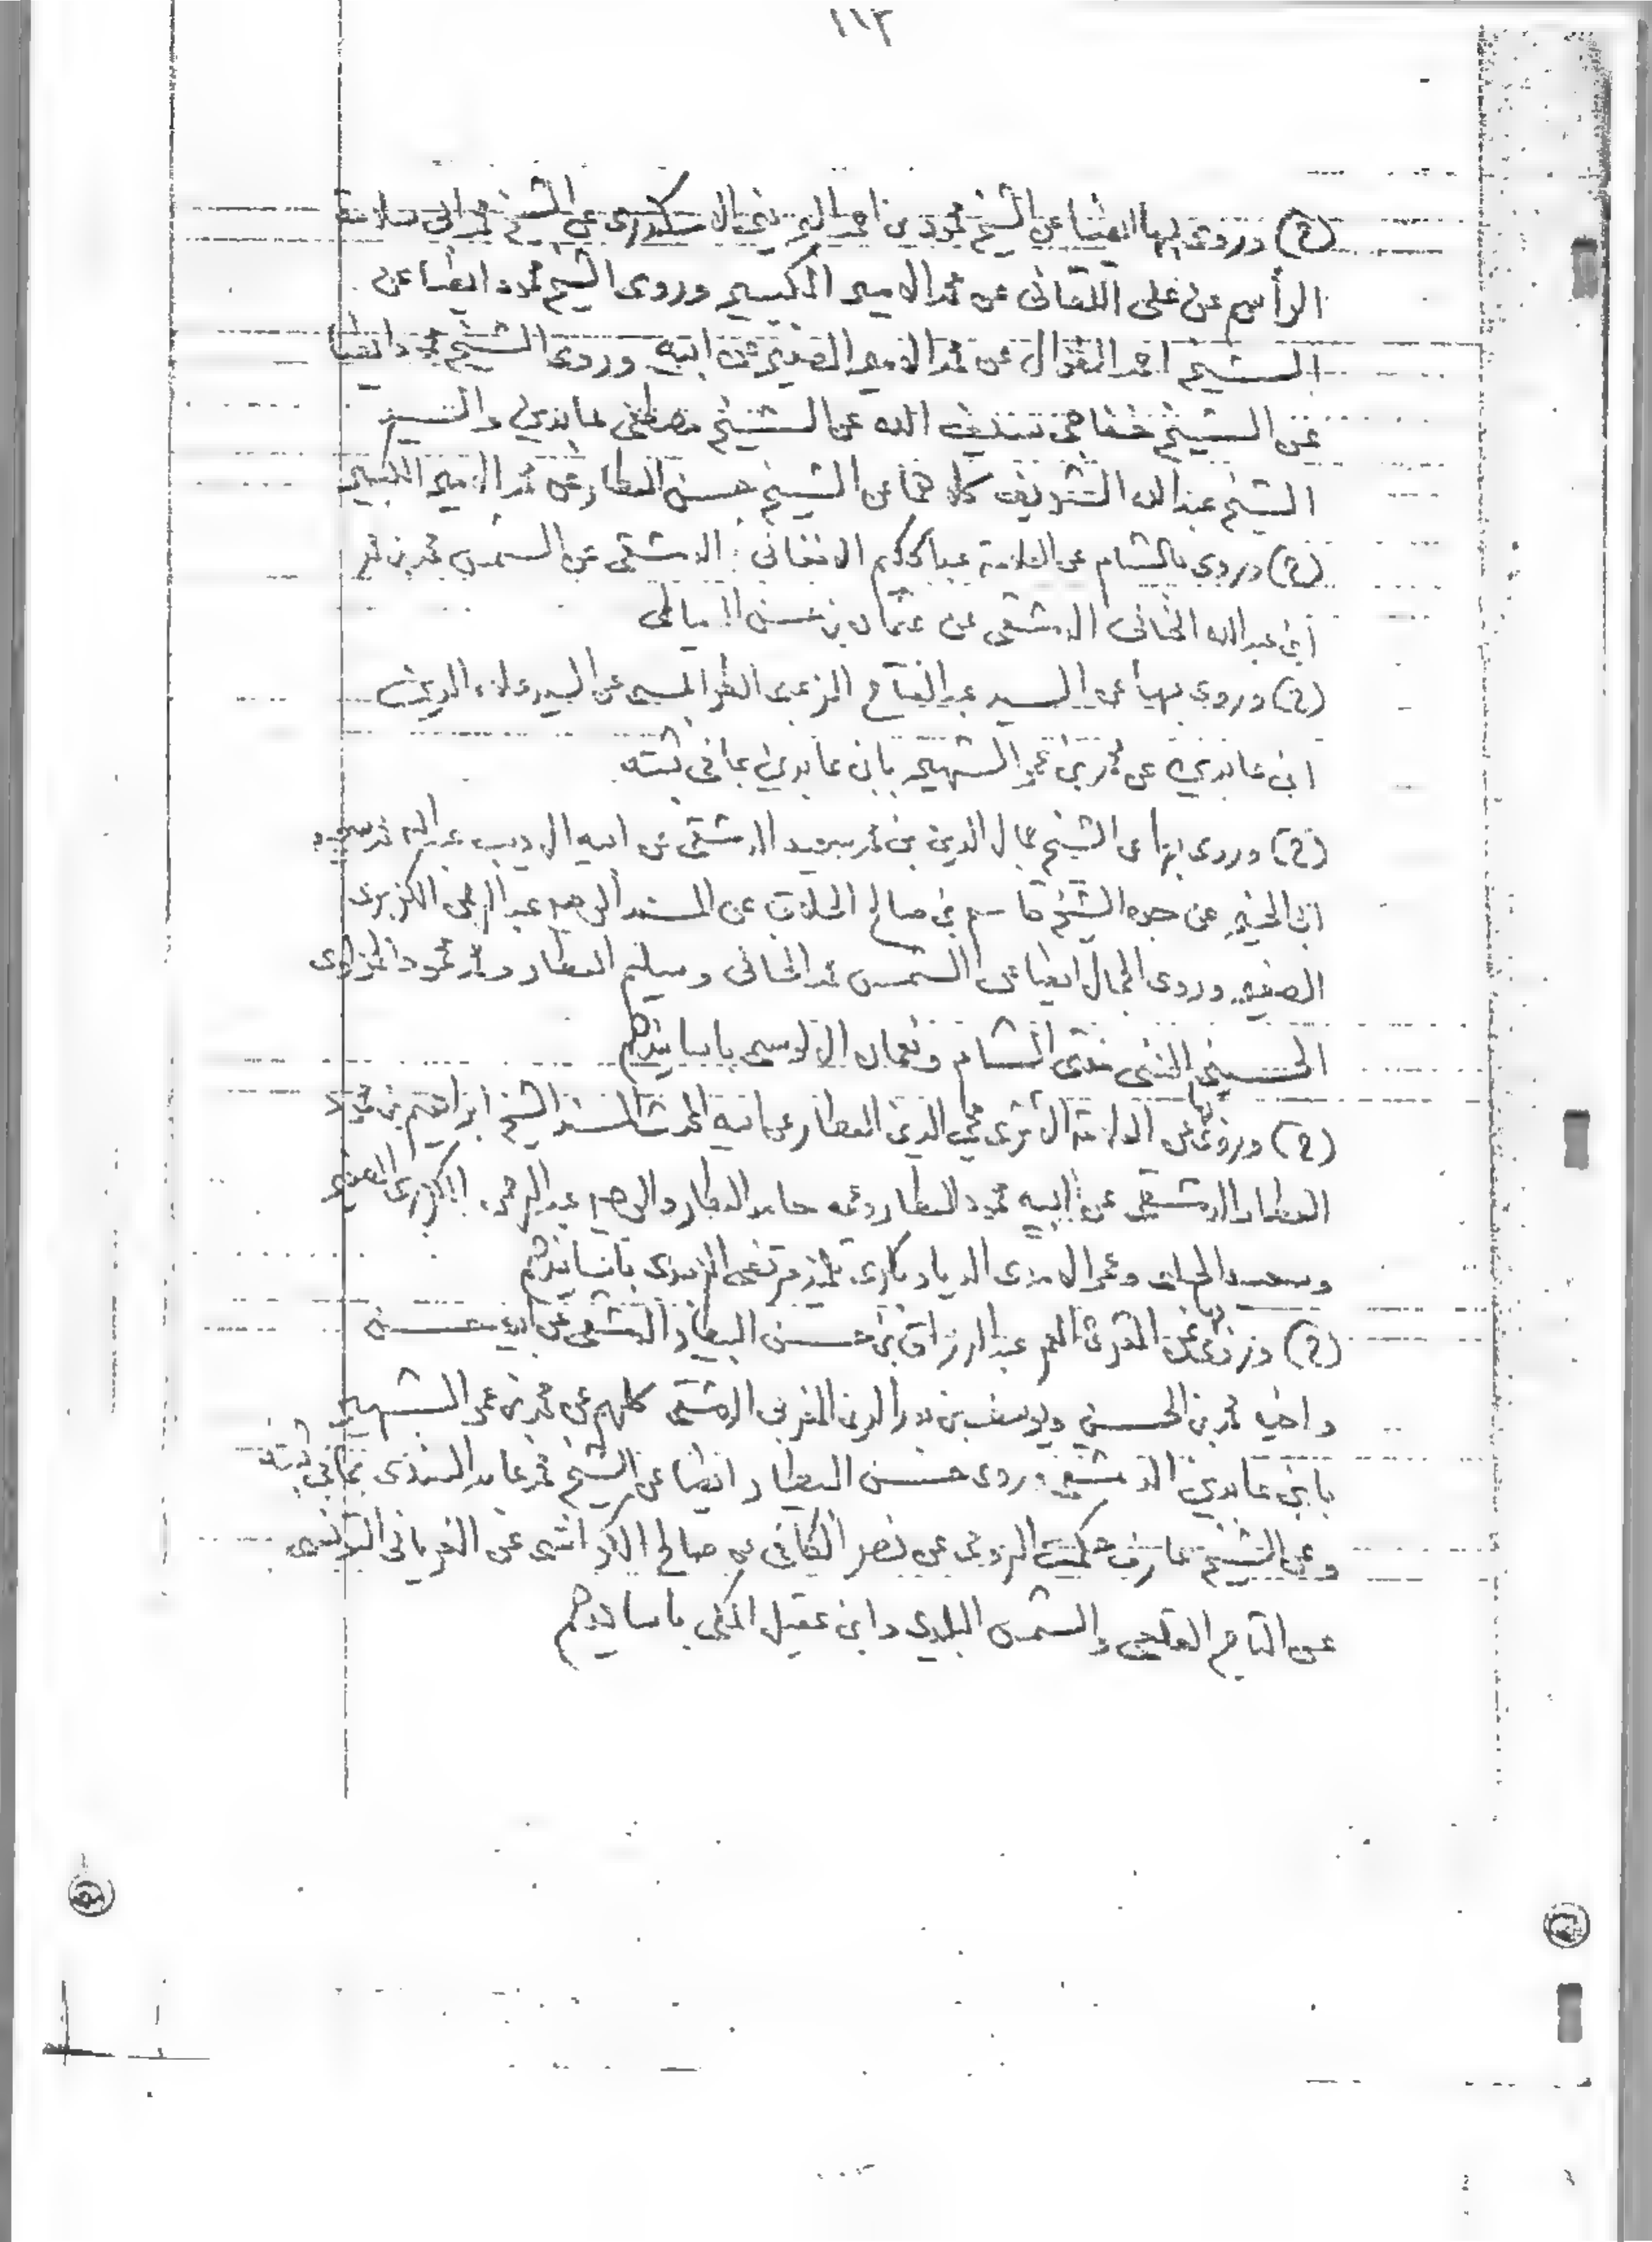 ١١٣
(ج) وروى بها ايضا عن الشيخ محمود بن احمد السكندرى عن الشيخ محمد ابى سلامة
الرأس عن على اللقانى عن محمد الامير الكبير وروى الشيخ محمود ايضا عن
الشيخ احمد عن محمد الامير الصغير عن ابيه وروى الشيخ محمود ايضا
عن الشيخ خفاجى الله عن الشيخ مصطفى عابدين والسيد
الشيخ عبد الله الشريف كلاهما عن الشيخ حسن العطار عن محمد الامير الكبير
(ج) وروى بالشام عن العلامة عبد الحكيم الافغانى الدمشقى عن الشمس محمد بن محمد
ابن عبد الله الخانى الدمشقى عن عثمان بن حسن الدمياطى
(ج) وروى بها عن السيد عبد الفتاح الزعبى الطرابلسى عن السيد علاء الدين
ابن عابدين عن محمد بن عمر الشهير بابن عابدين بما فى ثبته
(ج) وروى بها عن الشيخ جمال الدين بن محمد سعيد الدمشقى عن ابيه الاديب
ابى الخير عن جده الشيخ قاسم بن صالح الحلاق عن المسند الوجيه عبد الرحمن الكزبرى
الصغير وروى الجمال ايضا عن الشمس محمد الخانى وسليم العطار ومحمد محمود الحمزاوى
الحسينى الحنفى مفتى الشام ونعمان الالوسى باسانيدهم
(ج) وروى بها عن العلامة الاثرى محب الدين العطار عن ابيه المحدث المسند الشيخ ابراهيم بن محمود
العطار الدمشقى عن ابيه محمود العطار وعمه حامد العطار والوجيه عبد الرحمن الكزبرى الصغير
وسعيد الحلبى وعمر الامدى الديار بكرى تلميذ مرتضى الزبيدى باسانيدهم
(ج) وروى بها عن المعمر عبد الرزاق بن حسن البيطار الدمشقى عن ابيه حسن
واخيه محمد بن الحسن ويوسف بن بدر الدين المغربى الدمشقى كلهم عن محمد بن عمر الشهير
بابن عابدين الدمشقى وروى حسن البيطار ايضا عن الشيخ محمد عابد السندى بما فى ثبته
وعن الشيخ عارف حكمت الرومى عن نصر الكافى عن صالح الكواشى عن الغريانى التونسى
عن التاج القلعى والشمس البليدى وابن عقيل المكى باسانيدهم